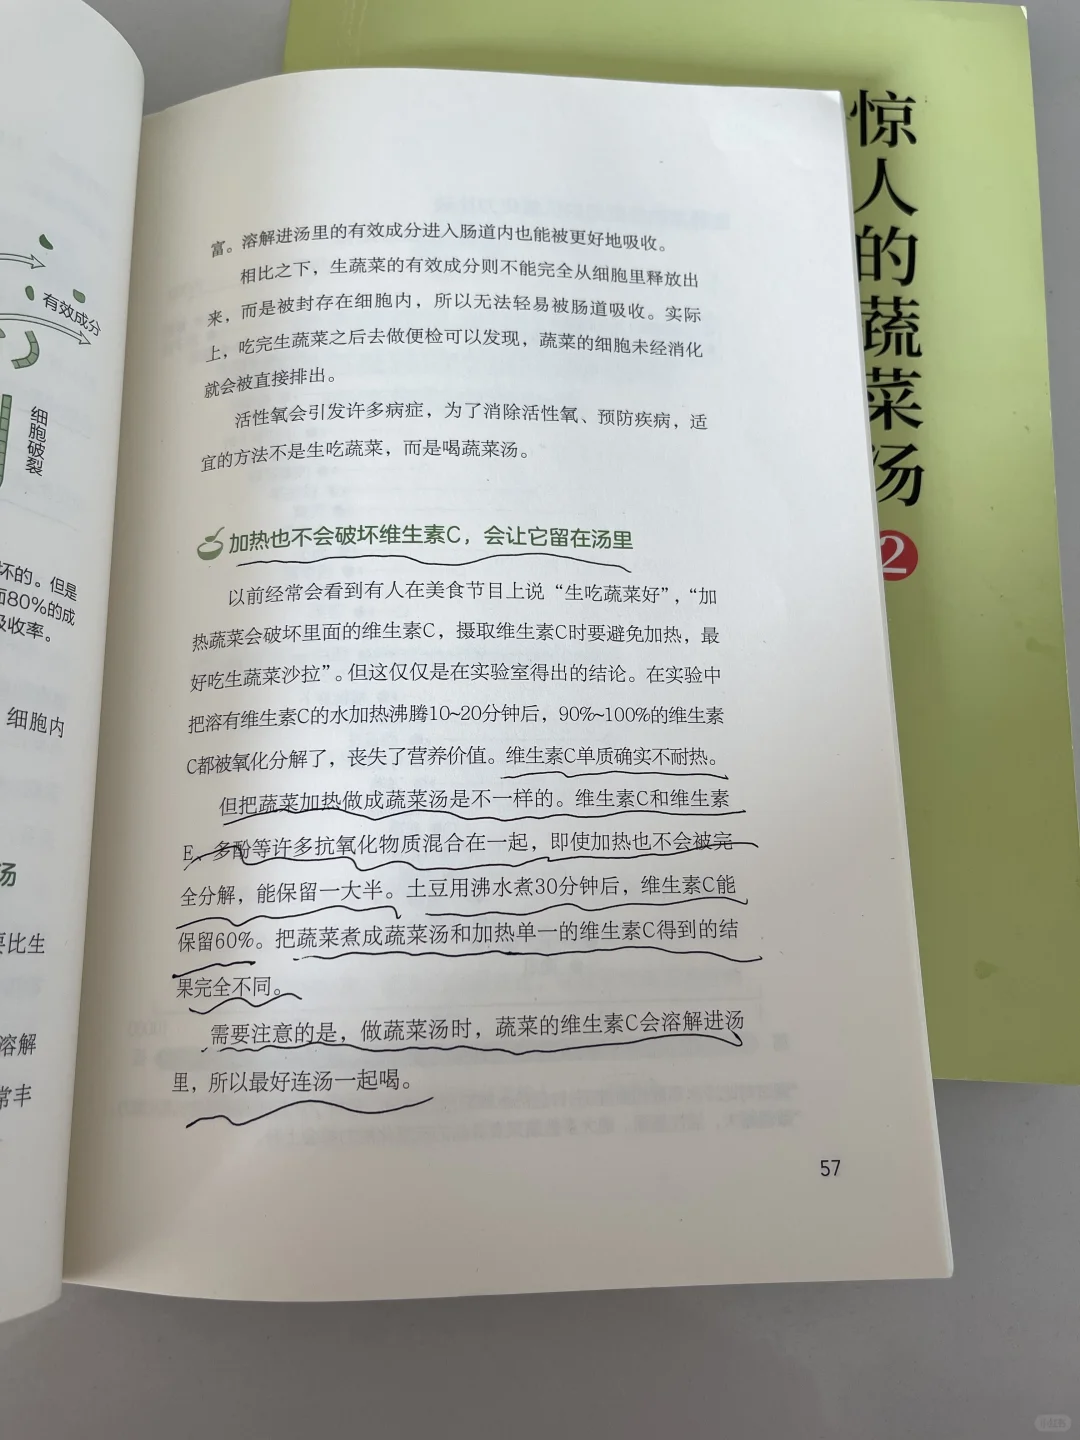 有效成分
细胞破裂
坏的。但是
面80%的成
吸收率。
细胞内
汤
要比生
溶解
常丰
富。溶解进汤里的有效成分进入肠道内也能被更好地吸收。
相比之下，生蔬菜的有效成分则不能完全从细胞里释放出
来，而是被封存在细胞内，所以无法轻易被肠道吸收。实际
上，吃完生蔬菜之后去做便检可以发现，蔬菜的细胞未经消化
就会被直接排出。
活性氧会引发许多病症，为了消除活性氧、预防疾病，适
宜的方法不是生吃蔬菜，而是喝蔬菜汤。
加热也不会破坏维生素C，会让它留在汤里
以前经常会看到有人在美食节目上说“生吃蔬菜好”，“加
热蔬菜会破坏里面的维生素C，摄取维生素C时要避免加热，最
好吃生蔬菜沙拉”。但这仅仅是在实验室得出的结论。在实验中
把溶有维生素C的水加热沸腾10~20分钟后，90%~100%的维生素
C都被氧化分解了，丧失了营养价值。维生素C单质确实不耐热。
但把蔬菜加热做成蔬菜汤是不一样的。维生素C和维生素
E、多酚等许多抗氧化物质混合在一起，即使加热也不会被完
全分解，能保留一大半。土豆用沸水煮30分钟后，维生素C能
保留60%。把蔬菜煮成蔬菜汤和加热单一的维生素C得到的结
果完全不同。
需要注意的是，做蔬菜汤时，蔬菜的维生素C会溶解进汤
里，所以最好连汤一起喝。
57
惊人的蔬菜汤
2
小红书